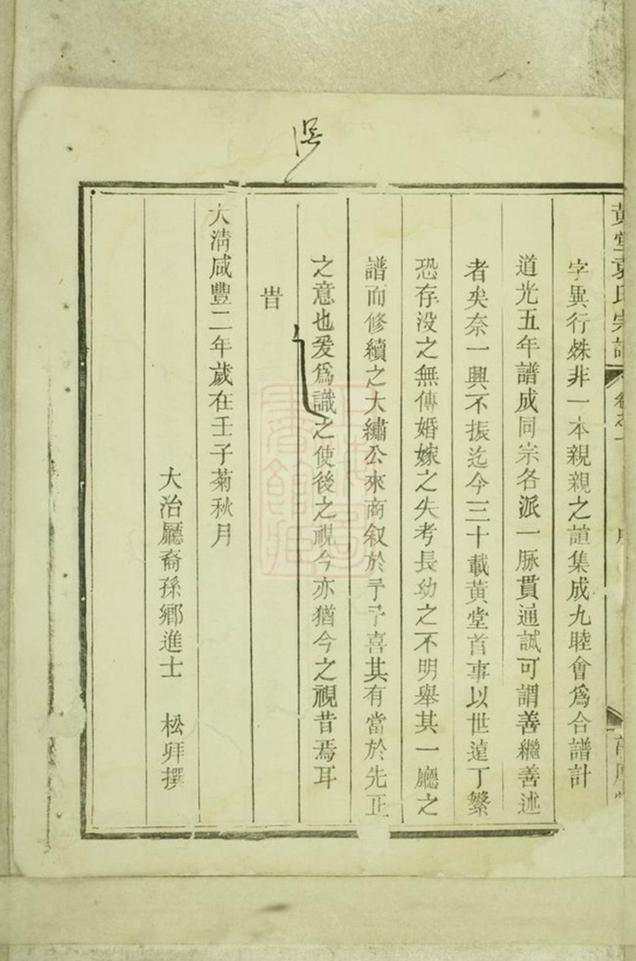 黃堂袁氏宗譜
卷之一
序
字異行殊非一本親親之誼集成九睦會爲合譜計
道光五年譜成同宗各派一脉貫通誠可謂善繼善述
者矣奈一興不振迄今三十載黃堂首事以世遠丁繁
恐存没之無傳婚嫁之失考長幼之不明舉其一廳之
譜而修續之大繡公來商叙於予予喜其有當於先正
之意也爰爲識之使後之視今亦猶今之視昔焉耳
旹
大淸咸豐二年歲在壬子菊秋月
大治廳裔孫鄉進士 松拜撰